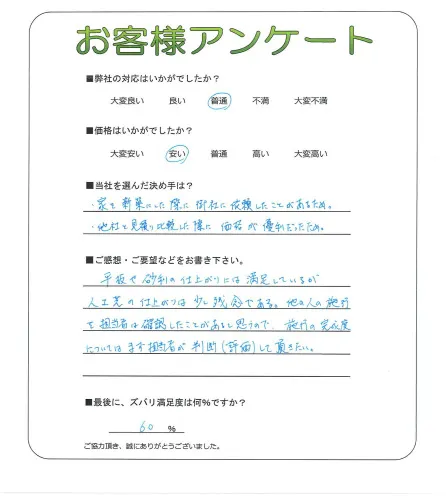 お客様アンケート
■弊社の対応はいかがでしたか?
大変良い 良い 普通 不満 大変不満
■価格はいかがでしたか?
大変安い 安い 普通 高い 大変高い
■当社を選んだ決め手は?
・家を新築にした際に御社に依頼したことがあるため。
・他社と見積り比較した際に価格が優利だったため。
■ご感想・ご要望などをお書き下さい。
平板や砂利の仕上がりには満足しているが
人工芝の仕上がりは少し残念である。他の人の施行
も担当者は確認したことがあると思うので、施行の完成度
についてはまず担当者が判断(評価)して頂きたい。
■最後に、ズバリ満足度は何%ですか?
60 %
ご協力頂き、誠にありがとうございました。